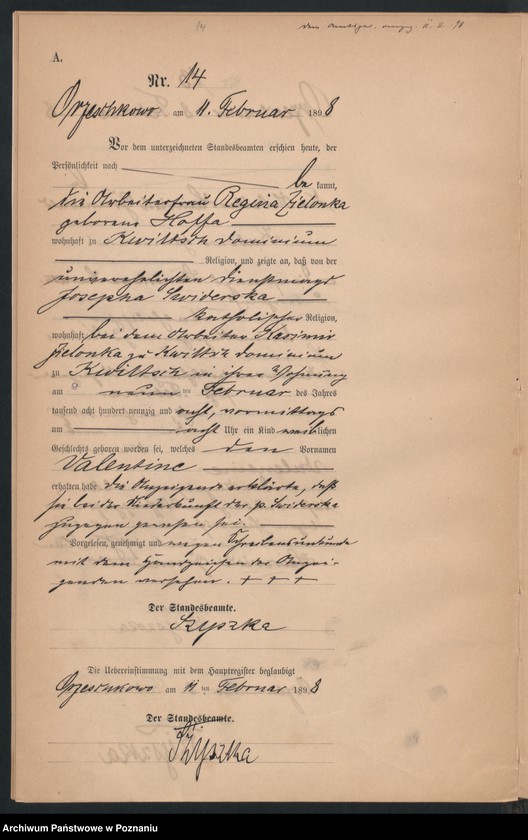 (4)
A.
Nr. 14
Orzeschkowo am 11. Februar 1898
Vor dem unterzeichneten Standesbeamten erschien heute, der
Persönlichkeit nach
be kannt,
die Arbeiterfrau Regina Zielonka
geborene Hoffa
wohnhaft zu Kwiltsch Dominium
Religion, und zeigte an, daß von der
unverehelichten Dienstmagd
Josepha Swiderska
katholischer Religion,
wohnhaft bei dem Arbeiter Kasimir
Zielonka zu Kwiltsch Dominium
zu Kwiltsch in ihrer Wohnung
am neun ten Februar des Jahres
tausend acht hundert neunzig und acht, vormittags
um acht Uhr ein Kind weiblichen
Geschlechts geboren worden sei, welches den Vornamen
Valentine
erhalten habe die Anzeigende erklärte, daß
sie bei der Niederkunft der p. Swiderska
zugegen gewesen sei.
Vorgelesen, genehmigt und wegen Schreibensunkunde
mit dem Handzeichen der Anzei-
genden versehen. + + +
Der Standesbeamte.
Szyszka
Die Uebereinstimmung mit dem Hauptregister beglaubigt
Orzeschkowo am 11 ten Februar 1898
Der Standesbeamte.
Szyszka
Archiwum Państwowe w Poznaniu